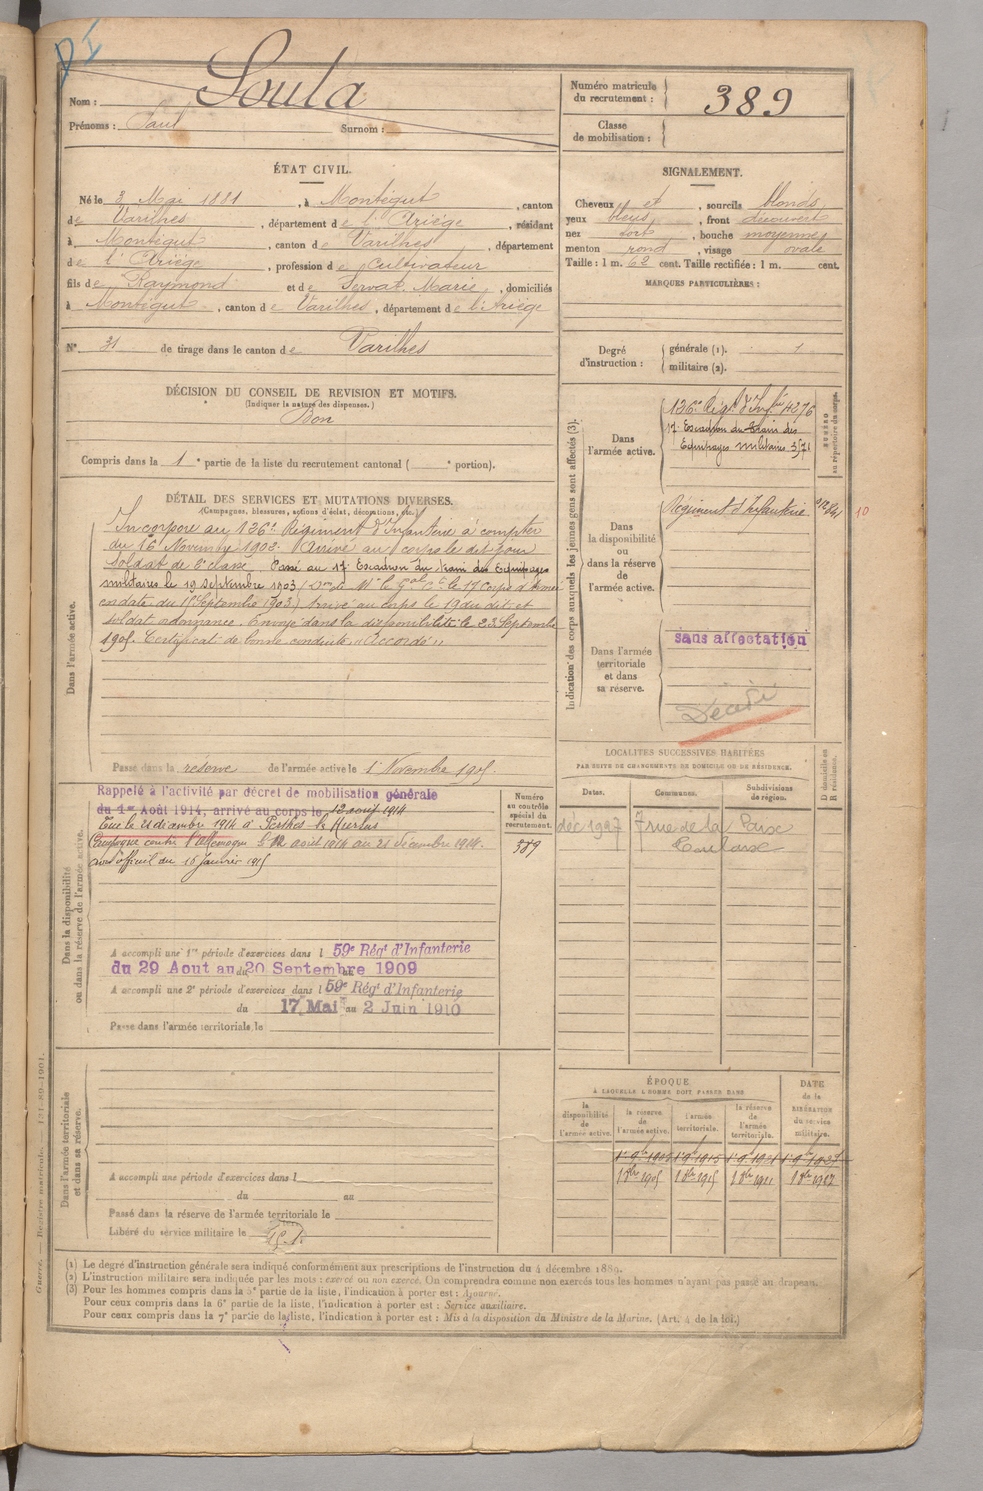 Nom : Soula
Prénoms : Paul Surnom :
Numéro matricule du recrutement : 389
Classe de mobilisation :
ÉTAT CIVIL.
Né le 3 Mai 1881, à Montégut, canton
de Varilhes, département de l'Ariège, résidant
à Montégut, canton de Varilhes, département
de l'Ariège, profession de cultivateur
fils de Raymond et de Servat, Marie, domiciliés
à Montégut, canton de Varilhes, département de l'Ariège
N° 31 de tirage dans le canton de Varilhes
SIGNALEMENT.
Cheveux et, sourcils blonds
yeux bleus, front découvert
nez fort, bouche moyenne
menton rond, visage ovale
Taille : 1 m. 62 cent. Taille rectifiée : 1 m. cent.
MARQUES PARTICULIÈRES :
Degré d'instruction : générale (1). 1
militaire (2).
DÉCISION DU CONSEIL DE REVISION ET MOTIFS.
(Indiquer la nature des dispenses.)
Bon
Compris dans la 1e partie de la liste du recrutement cantonal ( e portion).
DÉTAIL DES SERVICES ET MUTATIONS DIVERSES.
(Campagnes, blessures, actions d'éclat, décorations, etc.)
Dans l'armée active.
Incorporé au 126e Régiment d'Infanterie à compter
du 16 Novembre 1902. Arrivé au corps le dit jour
soldat de 2e classe. Passé au 17e Escadron du Train des Equipages
militaires le 19 septembre 1903 le 17e Corps d'Armée
en date du Septembre 1903) Arrivé au corps le 19 du dit et
soldat ordonnance. Envoyé dans la disponibilité le 23 Septembre
1905. Certificat de bonne conduite "Accordé"
Passé dans la réserve de l'armée active le 1 Novembre 1905.
Indication des corps auxquels les jeunes gens sont affectés (3).
NUMÉRO au répertoire du corps.
Dans l'armée active.
126e Régt d'Infie 4276
17e Escadron du Train des
Equipages militaires 3571
Dans la disponibilité ou dans la réserve de l'armée active.
Régiment d'Infanterie
10
Dans l'armée territoriale et dans sa réserve.
sans affectation
Décédé
Dans la disponibilité ou dans la réserve de l'armée active.
Rappelé à l'activité par décret de mobilisation générale
du 1er Août 1914, arrivé au corps le 12 août 1914
Tué le 21 décembre 1914 à Perthes les Hurlus
Campagne contre l'Allemagne du 12 août 1914 au 21 décembre 1914.
avis officiel du 16 Janvier 1915
Numéro au contrôle spécial du recrutement.
389
A accompli une 1re période d'exercices dans l 59e Régt d'Infanterie
du 29 Aout au 20 Septembre 1909
A accompli une 2e période d'exercices dans l 59e Régt d'Infanterie
du 17 Mai au 2 Juin 1910
Passé dans l'armée territoriale le
LOCALITÉS SUCCESSIVES HABITÉES
PAR SUITE DE CHANGEMENTS DE DOMICILE OU DE RÉSIDENCE.
Dates. Communes. Subdivisions de région. D domicile ou R résidence.
déc 1927 7 rue de la Paix
Toulouse
Dans l'armée territoriale et dans sa réserve.
A accompli une période d'exercices dans l
du au
Passé dans la réserve de l'armée territoriale le
Libéré du service militaire le
ÉPOQUE
À LAQUELLE L'HOMME DOIT PASSER DANS
la disponibilité de l'armée active.
la réserve de l'armée active.
l'armée territoriale.
la réserve de l'armée territoriale.
DATE de la LIBÉRATION du service militaire.
1 9bre 1905 1 9bre 1915 1 9bre 1921 1 9bre 1927
Guerre. — Registre matricule. —
(1) Le degré d'instruction générale sera indiqué conformément aux prescriptions de l'instruction du 4 décembre 1889.
(2) L'instruction militaire sera indiquée par les mots : exercé ou non exercé. On comprendra comme non exercés tous les hommes n'ayant pas passé au drapeau.
(3) Pour les hommes compris dans la 5e partie de la liste, l'indication à porter est : Ajourné.
Pour ceux compris dans la 6e partie de la liste, l'indication à porter est : Service auxiliaire.
Pour ceux compris dans la 7e partie de la liste, l'indication à porter est : Mis à la disposition du Ministre de la Marine. (Art. 4 de la loi.)